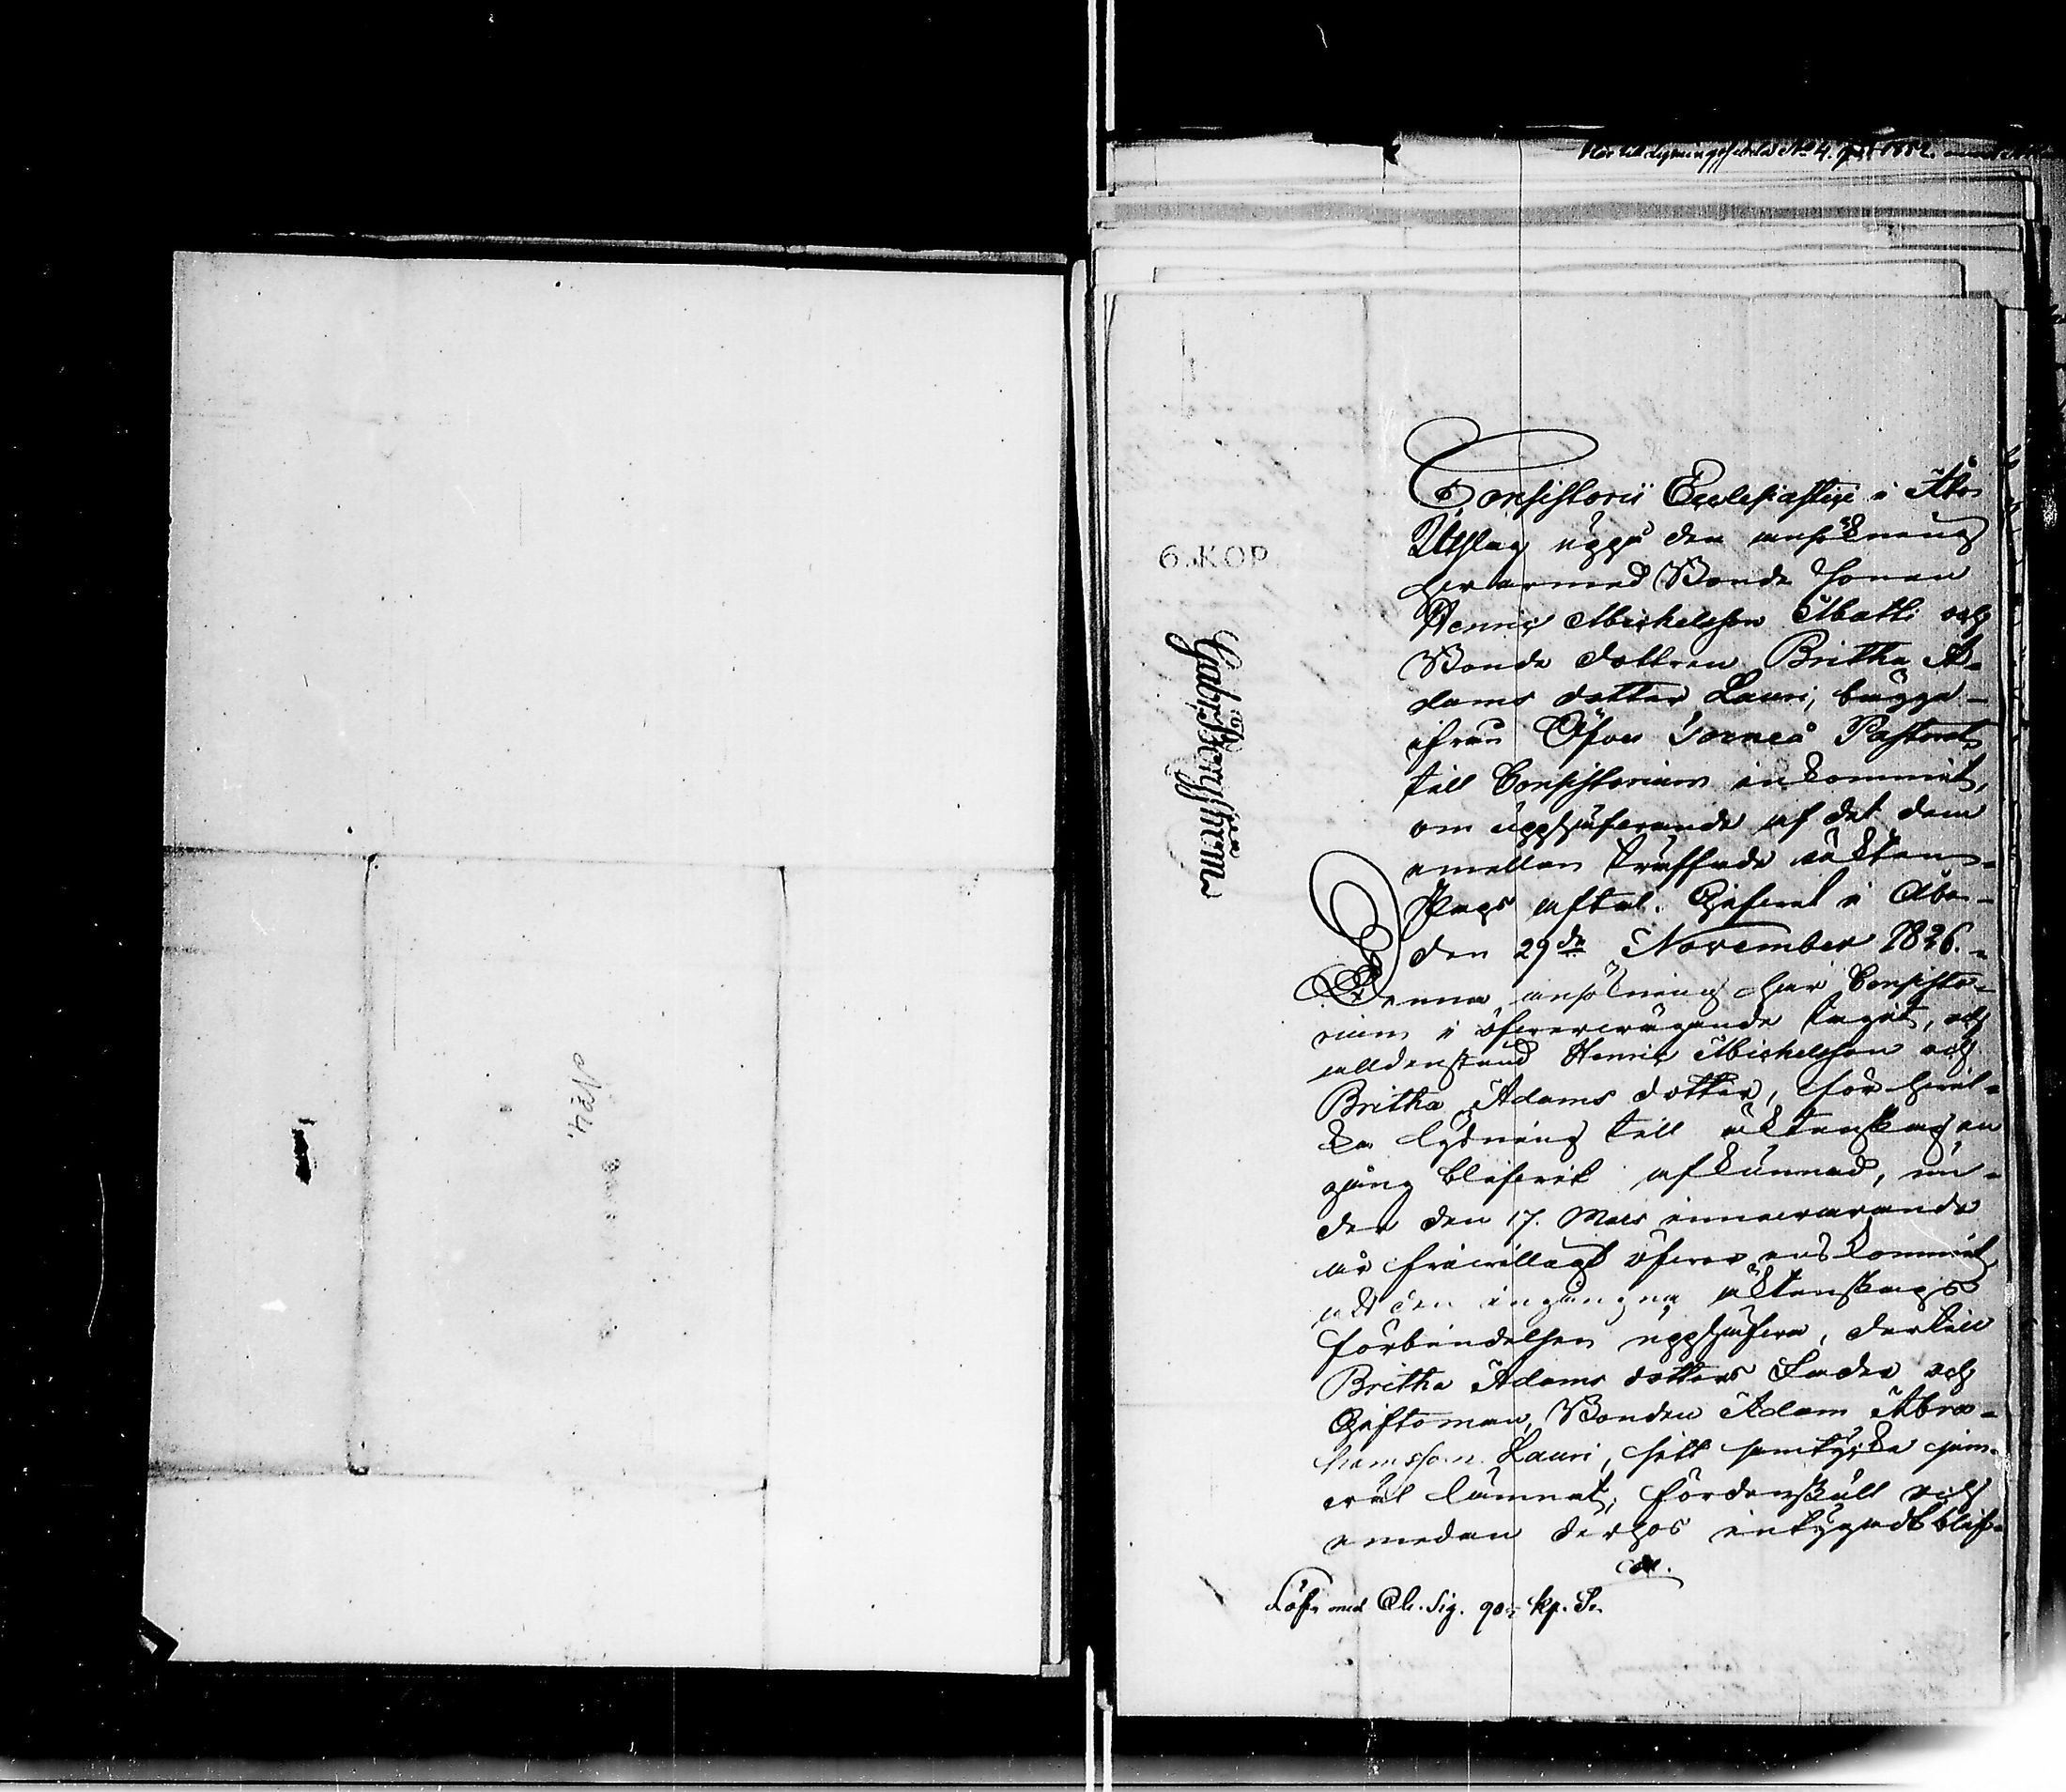 N:o 4.
6. KOP.
Consistorii Ecclesiastici i Åbo
Utslag uppå den ansökning
hvarmed Bonde Sonen
Henric Michelsson Matti och
Bonde dottren Britha A-
dams dotter Lauri, bägge
ifrån Öfver Torneå Pastorat
till Consistorium inkommit,
om upphäfvande af det dem
emellan träffade äkten-
skaps aftal. Gifvet i Åbo
den 29de November 1826.
Denna ansökning har Consisto-
rium i öfvervägande tagit, och
alldenstund Henric Michelsson och
Britha Adams dotter, för hvil-
ka lysning till äktenskap en
gång blifvit afkunnad, un-
der den 17. Mars innevarande
år frivilligt öfverenskommit,
att den ingångna äktenskaps
förbindelsen upphäfva, dertill
Britha Adams dotters Fader och
Giftoman, Bonden Adam Abra-
hamsson Lauri, sitt samtycke jem-
väl lämnat; fördenskull och
emedan derhos intygadt blif-
vit.
Lösn med Ch. Sig. kp. Sr.